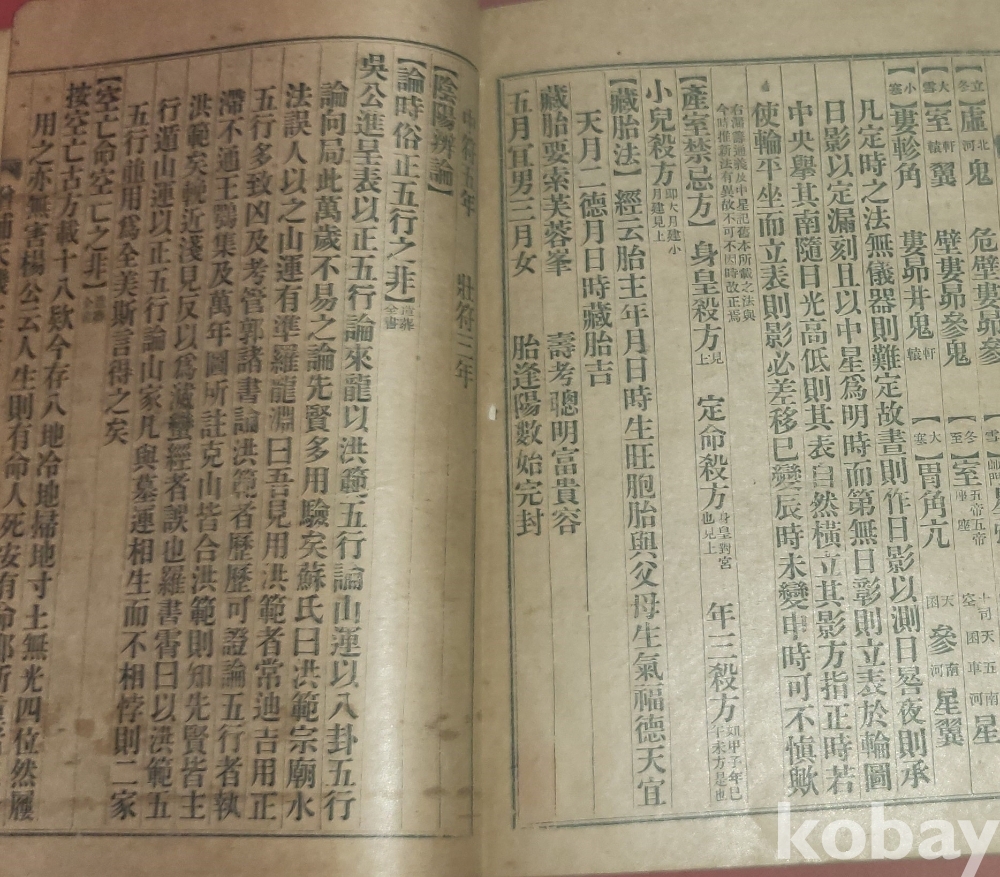 立冬 虛 北河 鬼 危壁婁昴參
大雪 室 軒轅 翼 壁婁昴參鬼 冬至 室 五帝座 五帝座
小寒 婁軫角 婁昴井鬼 軒轅 大寒 胃角亢 天囷 參 南河 星翼
凡定時之法無儀器則難定故晝則作日影以測日晷夜則承
日影以定漏刻且以中星爲明時而第無日彰則立表於輪圖
中央擧其南隨日光高低則其表自然橫立其影方指正時若
使輪平坐而立表則影必差移巳變辰時未變申時可不愼歟
【產室禁忌方】 身皇殺方 見上 定命殺方 身皇對宮也見上 年三殺方 如甲子年巳午未方是也
小兒殺方 卽大月建小月建見上
【藏胎法】經云胎王年月日時生旺胞胎與父母生氣福德天宜
天月二德月日時藏胎吉
藏胎要索芙蓉峯 壽考聰明富貴容
五月宜男三月女 胎逢陽數始完封
中符五年 壯符三年
【陰陽辨論】
【論時俗正五行之非】
吳公進呈表以正五行論來龍以洪範五行論山運以八卦五行
論向局此萬歲不易之論先賢多用驗矣蘇氏曰洪範宗廟水
法誤人以之山運有準羅龍淵曰吾見用洪範者常迪吉用正
五行多致凶及考管郭諸書論洪範者歷歷可證論五行者執
滯不通王鸚集及萬年圖所註克山皆合洪範則知先賢皆主
洪範矣輓近淺見反以爲滅蠻經者誤也羅書霄曰以洪範五
行遁山運以正五行論山家凡與墓運相生而不相悖則二家
五行並用爲全美斯言得之矣
【空亡命空亡之非】
按空亡古方載十八欵今存八地冷地掃地寸土無光四位然屢
用之亦無害楊公云人生則有命人死安有命郎